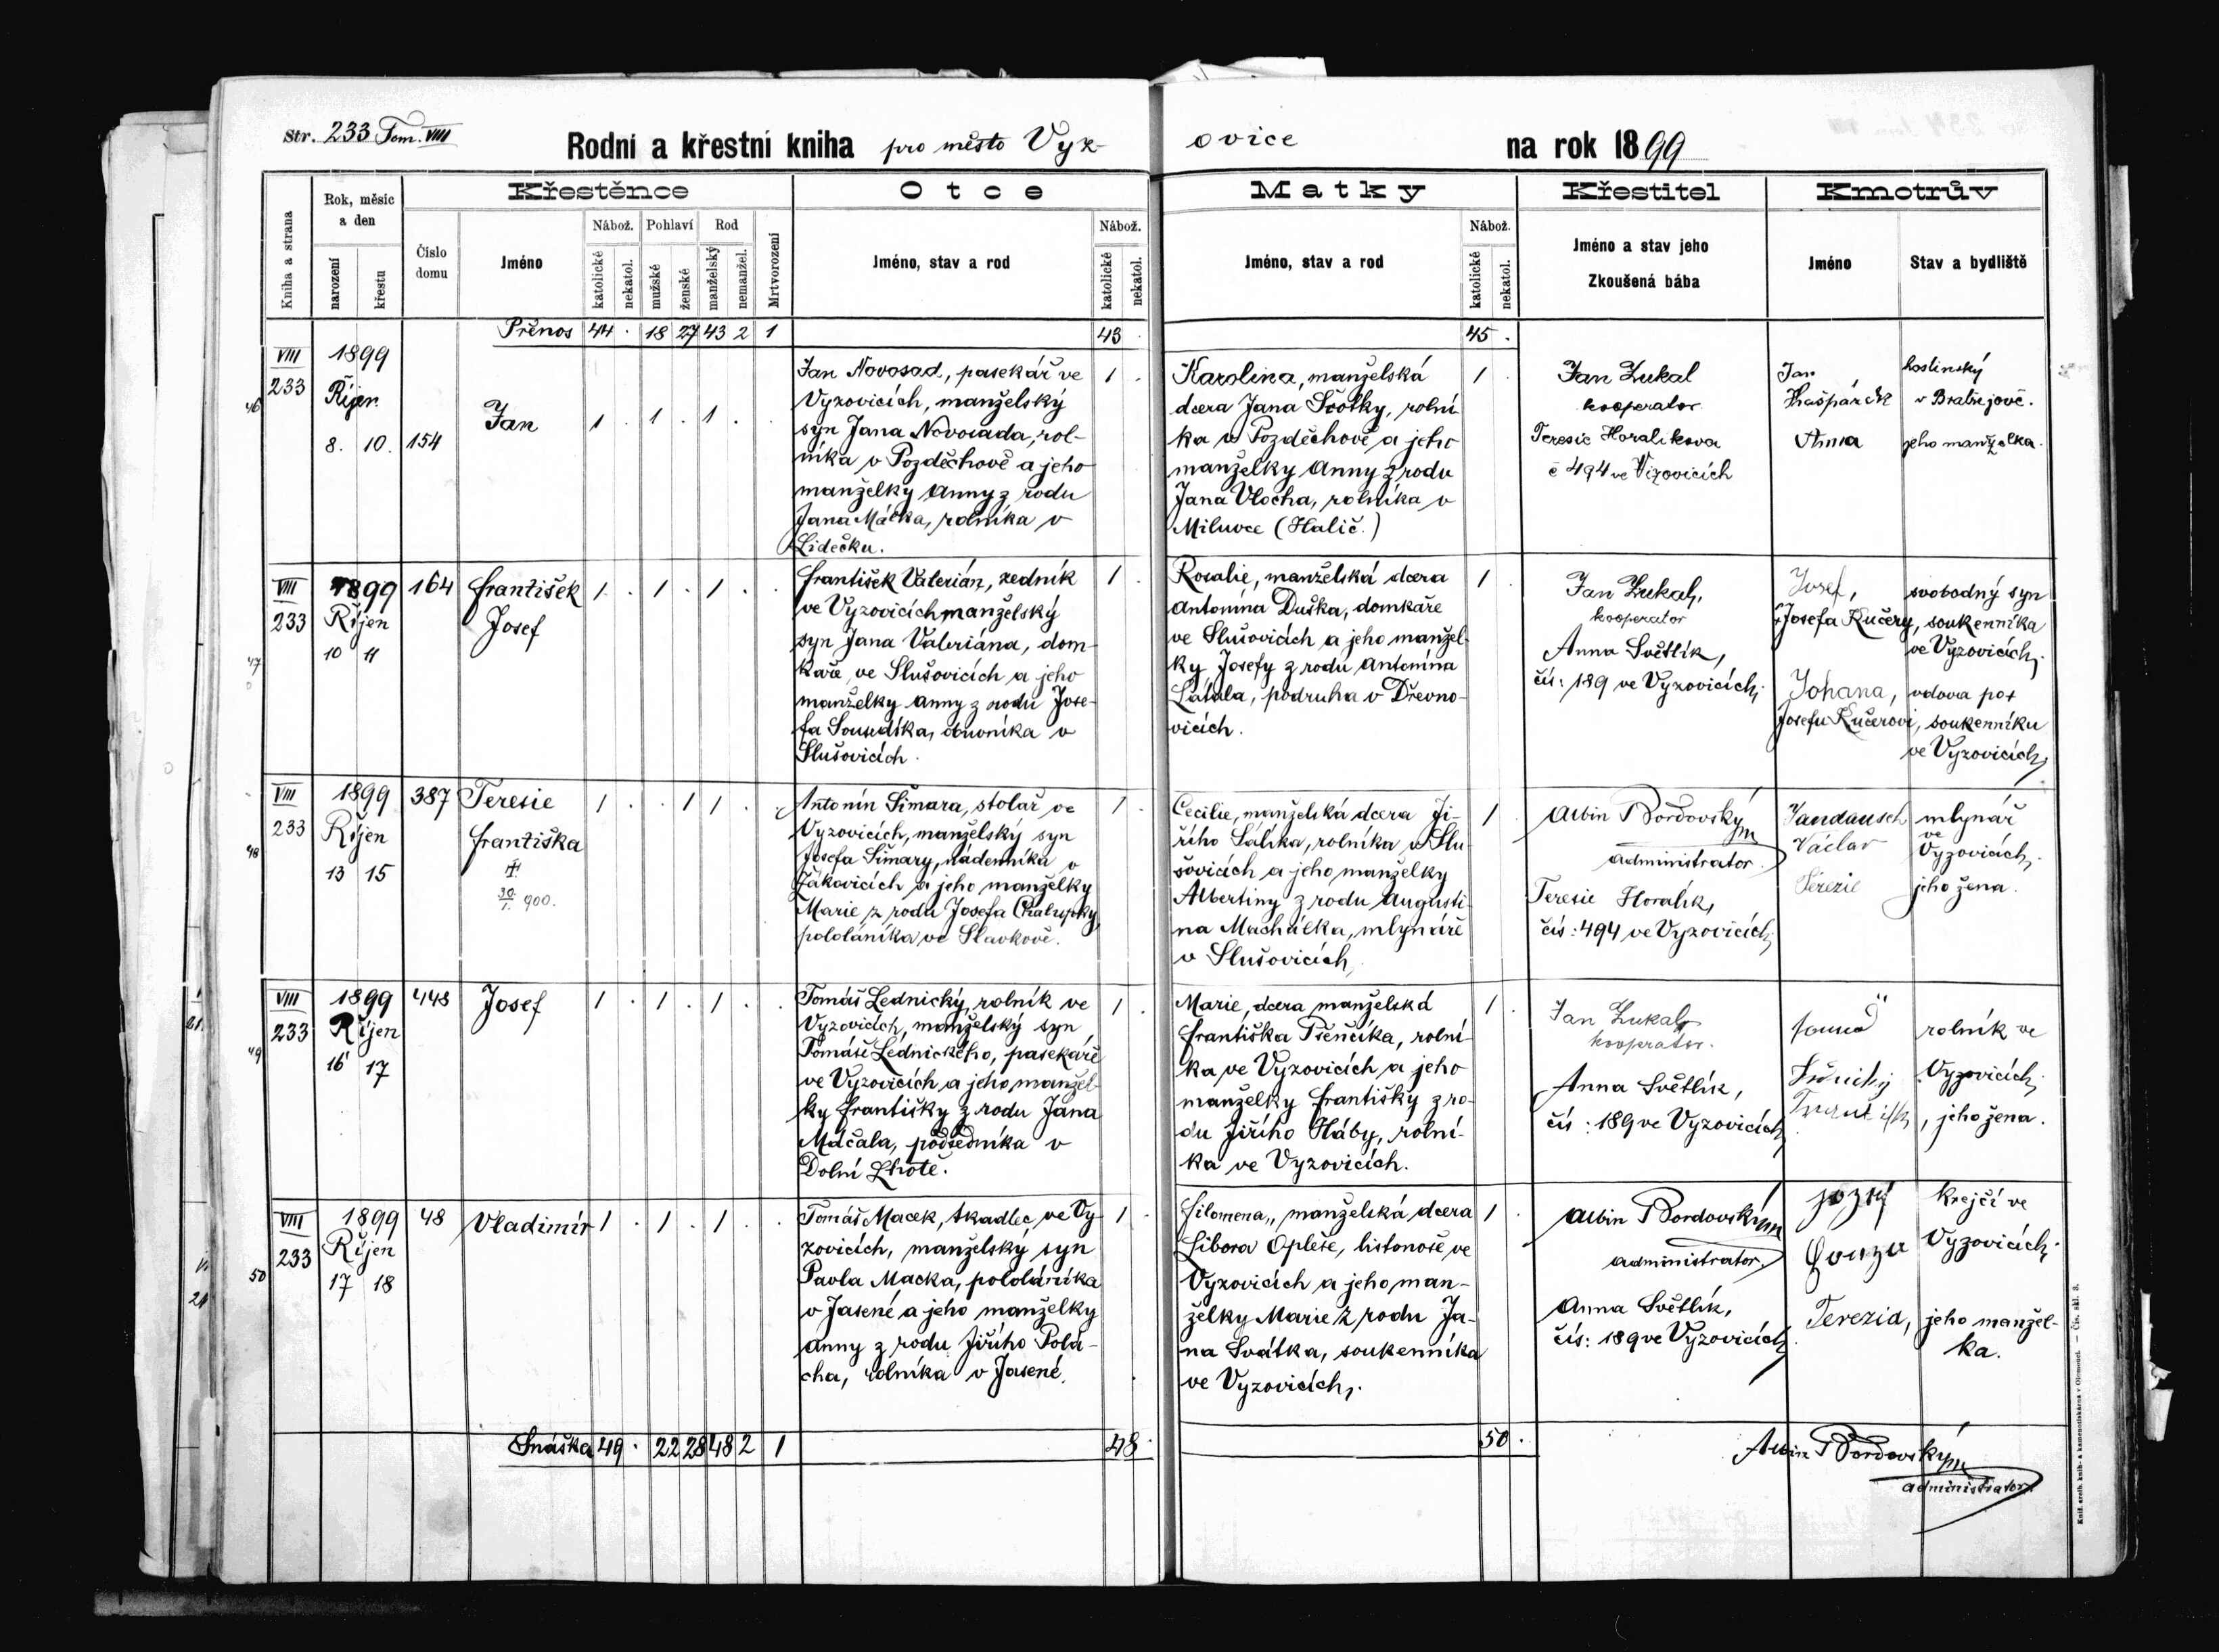 Str. 233 Tom. VIII
Rodní a křestní kniha pro město Vyz-
ovice na rok 1899
Kniha a strana
Rok, měsíc a den
narození
křestu
Číslo domu
Křestěnce
Jméno
Nábož.
katolické
nekatol.
Pohlaví
mužské
ženské
Rod
manželský
nemanžel.
Mrtvorození
Otce
Jméno, stav a rod
Nábož.
katolické
nekatol.
Matky
Jméno, stav a rod
Nábož.
katolické
nekatol.
Křestitel
Jméno a stav jeho
Zkoušená bába
Kmotrův
Jméno
Stav a bydliště
Přenos 44 . 18 27 43 2 1
43 .
45 .
46
VIII
233
1899
Říjen
8. 10. 154
Jan
1 . 1 . 1 . .
Jan Novosad, pasekář ve
Vyzovicích, manželský
syn Jana Novosada, rol-
níka v Pozděchově a jeho
manželky Anny z rodu
Jana Máčka, rolníka v
Lidečku.
1 .
Karolina, manželská
dcera Jana Ščotky, rolní
ka v Pozděchově a jeho
manželky Anny z rodu
Jana Vlocha, rolníka v
Miluvce (Halič.)
1 .
Jan Zukal
kooperator
Teresie Horalikova
č 494 ve Vizovicích
Jan
Kašpárek
Anna
hostinský
v Bratřejově.
jeho manželka.
47
VIII
233
1899
Říjen
10 11
164
František
Josef
1 . 1 . 1 . .
František Valerián, zedník
ve Vyzovicích, manželský
syn Jana Valeriána, dom-
kaře, ve Slušovicích a jeho
manželky Anny z rodu Jose-
fa Sousedíka, domníka v
Slušovicích.
1 .
Rosalie, manželská dcera
Antonína Duška, domkáře
ve Slušovicích a jeho manžel-
ky Josefy z rodu Antonína
Látala, podruha v Dřevno-
vicích.
1 .
Jan Zukal,
kooperator
Anna Světlík,
čís: 189 ve Vyzovicích;
Josef, svobodný syn
Josefa Kučery, soukenníka
ve Vyzovicích;
Johana, vdova po
Josefu Kučerovi, soukenníku
ve Vyzovicích,
48
VIII
233
1899
Říjen
13 15
387
Teresie
Františka
†
30. 1. 900.
1 . . 1 1 . .
Antonín Šimara, stolař ve
Vyzovicích, manželský syn
Josefa Šimary, nádenníka v
Jákovicích a jeho manželky
Marie z rodu Josefa Chalupsky,
pololáníka ve Slavkově.
1 .
Cecilie, manželská dcera Ji-
řího Sálika, rolníka v Slu-
šovicích a jeho manželky
Albertiny z rodu Augusti-
na Machálka, mlynáře
v Slušovicích,
1 .
Albin Bordovský m
administrator.
Teresie Horalík,
čís: 494 ve Vyzovicích;
Jandausch
Václav
Terezie
mlynář
ve
Vyzovicích,
jeho žena.
49
VIII
233
1899
Říjen
16 17
448
Josef
1 . 1 . 1 . .
Tomáš Lednický, rolník ve
Vyzovicích, manželský syn
Tomáše Lednického, pasekáře
ve Vyzovicích a jeho manžel-
ky Františky z rodu Jana
Mačala, podsedníka v
Dolní Lhotě.
1 .
Marie, dcera manželská
Františka Pšenčíka, rolní-
ka ve Vyzovicích a jeho
manželky Františky z ro-
du Jiřího Háby, rolní-
ka ve Vyzovicích.
1 .
Jan Zukal,
kooperator.
Anna Světlík,
čís: 189 ve Vyzovicích,
rolník ve
Vyzovicích;
, jeho žena.
50
VIII
233
1899
Říjen
17 18
48
Vladimír
1 . 1 . 1 . .
Tomáš Macek, tkadlec, ve Vy-
zovicích, manželský syn
Pavla Macka, pololáníka
v Jasené a jeho manželky
Anny z rodu Jiřího Polá-
cha, rolníka v Jasené.
1 .
Filomena, manželská dcera
Libora Opleše, listonoše ve
Vyzovicích a jeho man-
želky Marie z rodu Ja-
na Svátka, soukenníka
ve Vyzovicích,.
1 .
Albin Bordovský m
administrator.
Anna Světlík,
čís: 189 ve Vyzovicích,
Terezia,
krejčí ve
Vyzovicích;
jeho manžel-
ka.
Snáška 49 . 22 28 48 2 1
48 .
50 .
Albin Bordovský m
administrator.